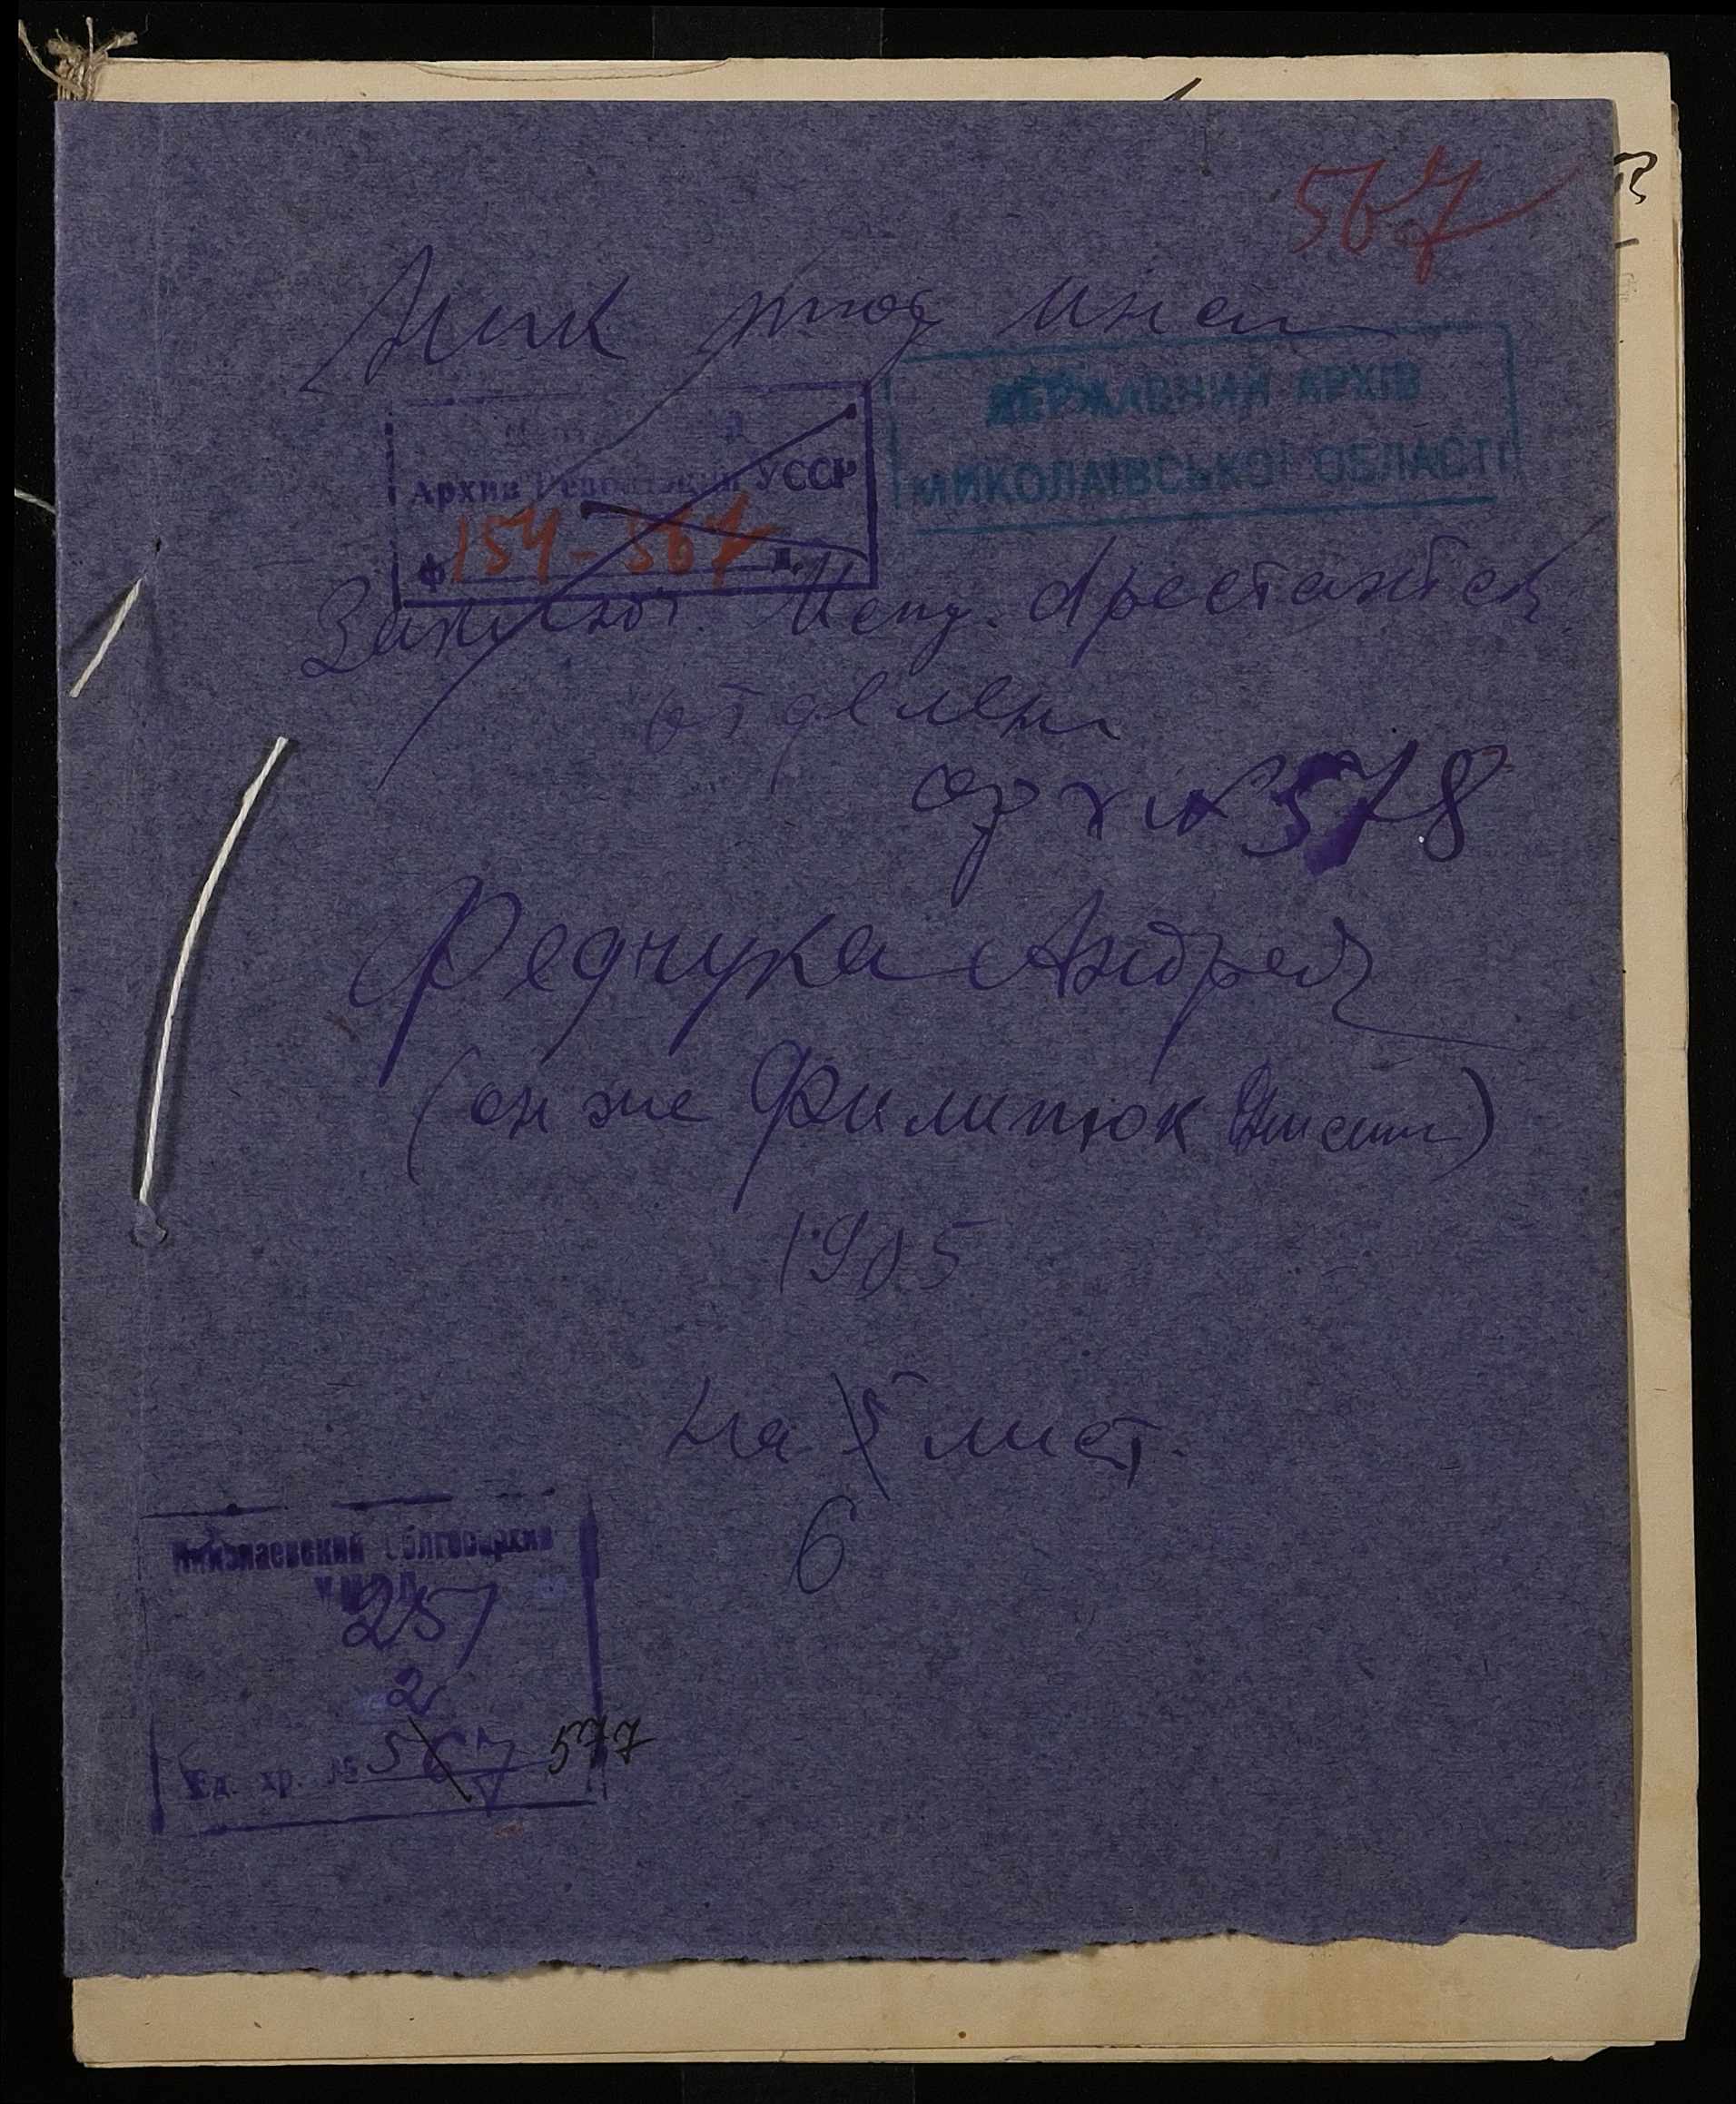 567
Ник тюр инсп
ДЕРЖАВНИЙ АРХІВ
МИКОЛАЇВСЬКОЇ ОБЛАСТІ
Архив Революции УССР
ф 154-567 д.
Арестантск
отделен
арх № 578
Федчука Андрея
(он же Филипюк)
1905
на 5 лист.
6
Николаевский Облгосархив
УМВД
257
2
Ед. хр. № 567 577